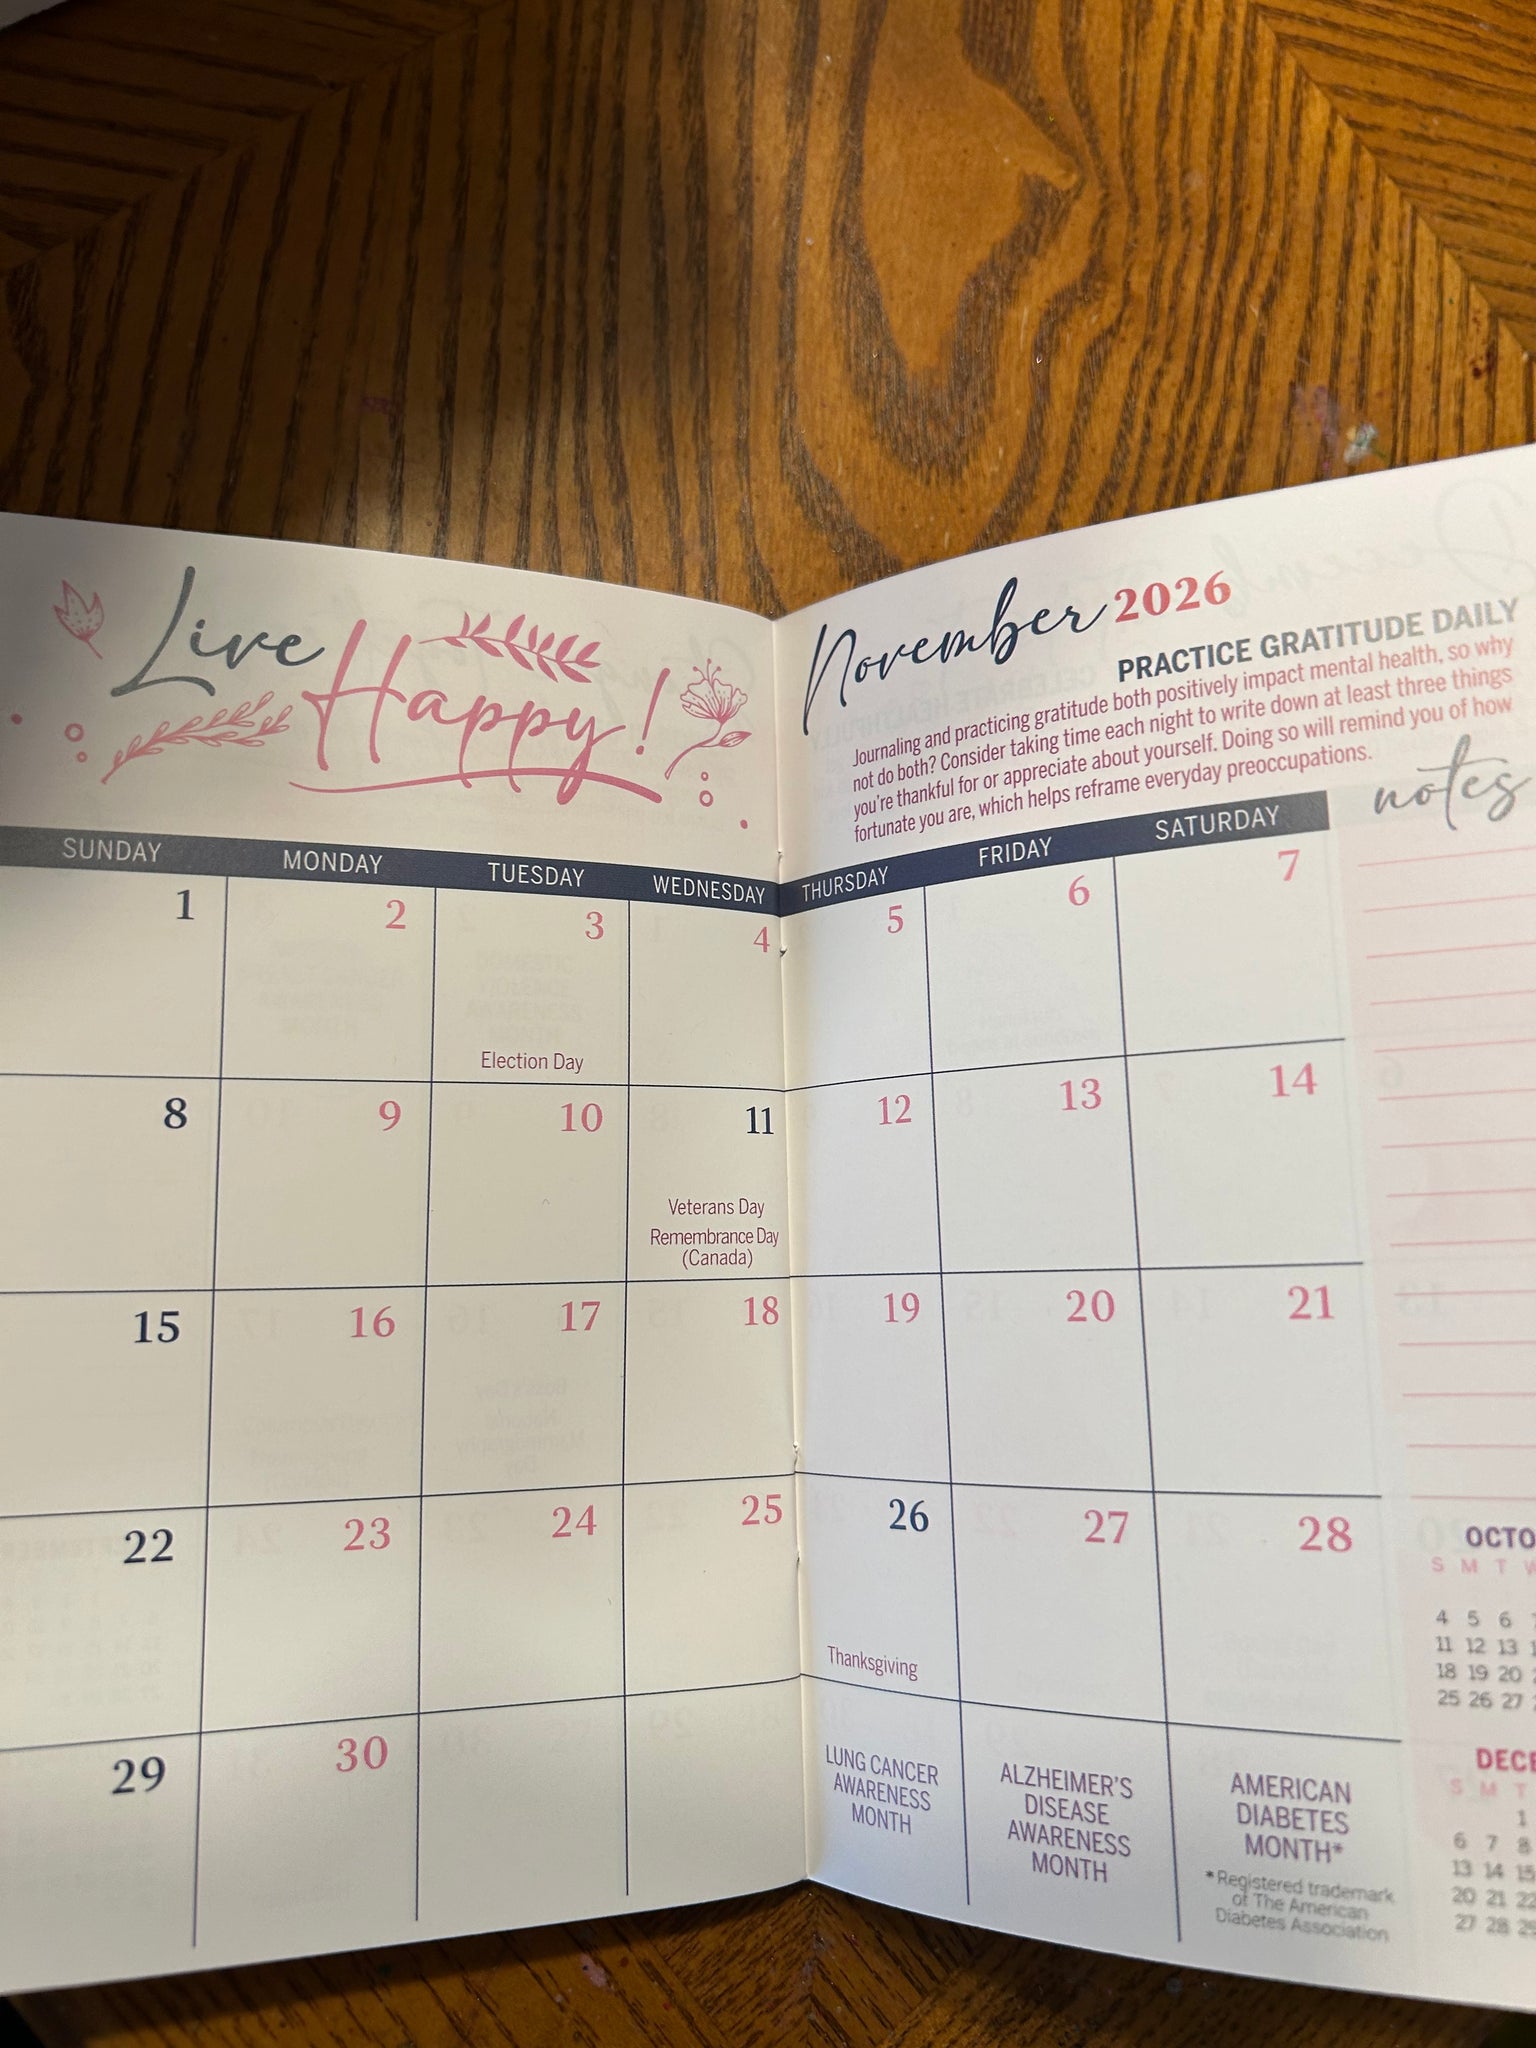 Live
Happy!
November 2026
PRACTICE GRATITUDE DAILY
Journaling and practicing gratitude both positively impact mental health, so why
not do both? Consider taking time each night to write down at least three things
you're thankful for or appreciate about yourself. Doing so will remind you of how
fortunate you are, which helps reframe everyday preoccupations.
notes
SUNDAY MONDAY TUESDAY WEDNESDAY THURSDAY FRIDAY SATURDAY
1 2 3 4 5 6 7
Election Day
8 9 10 11 12 13 14
Veterans Day
Remembrance Day
(Canada)
15 16 17 18 19 20 21
22 23 24 25 26 27 28
Thanksgiving
29 30
LUNG CANCER
AWARENESS
MONTH
ALZHEIMER'S
DISEASE
AWARENESS
MONTH
AMERICAN
DIABETES
MONTH*
*Registered trademark
of The American
Diabetes Association
OCTO
S M T W
4 5 6
11 12 13
18 19 20
25 26 27
DECE
S M T
1
6 7 8
13 14 15
20 21 22
27 28 29